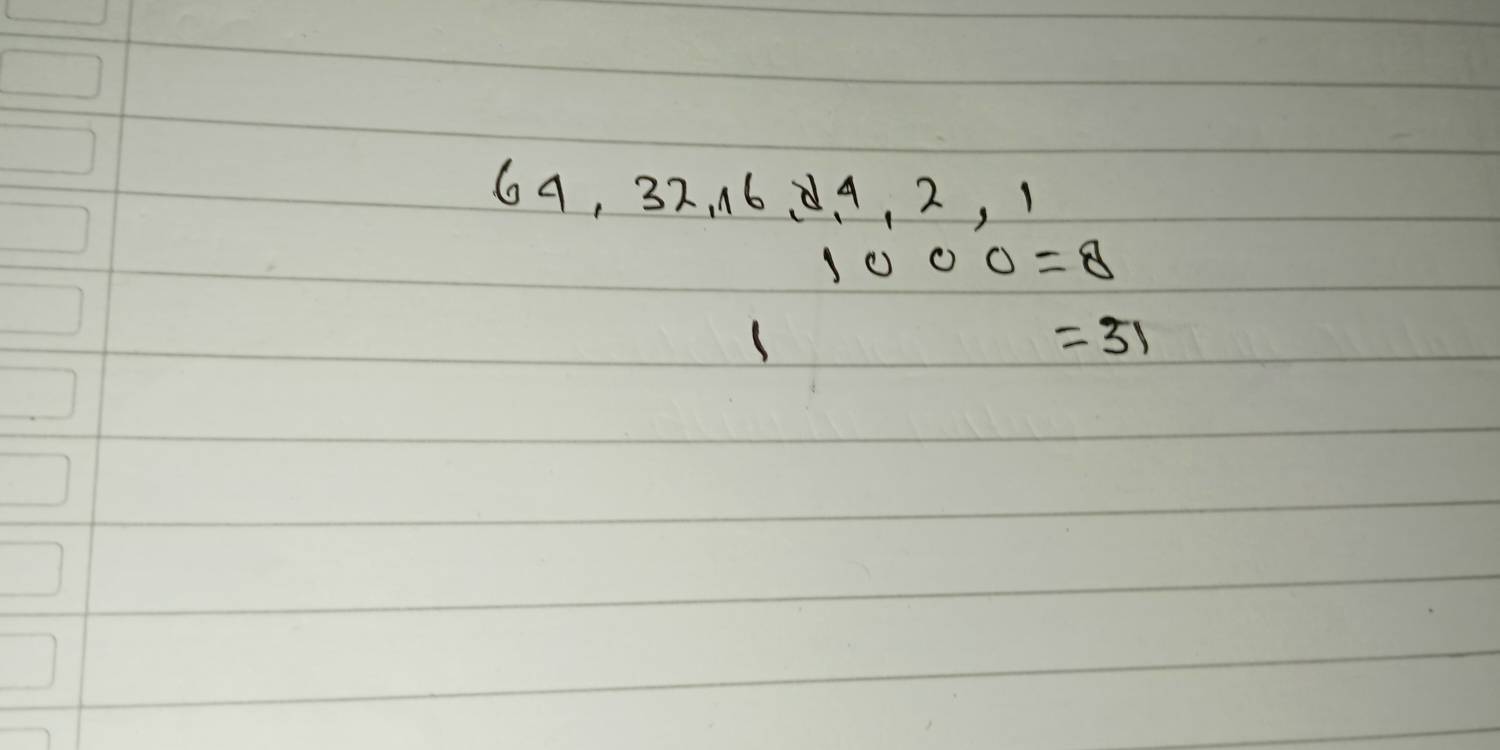 64, 32, 16, 8, 4, 2, 1
1 0 0 0 = 8
1 = 31